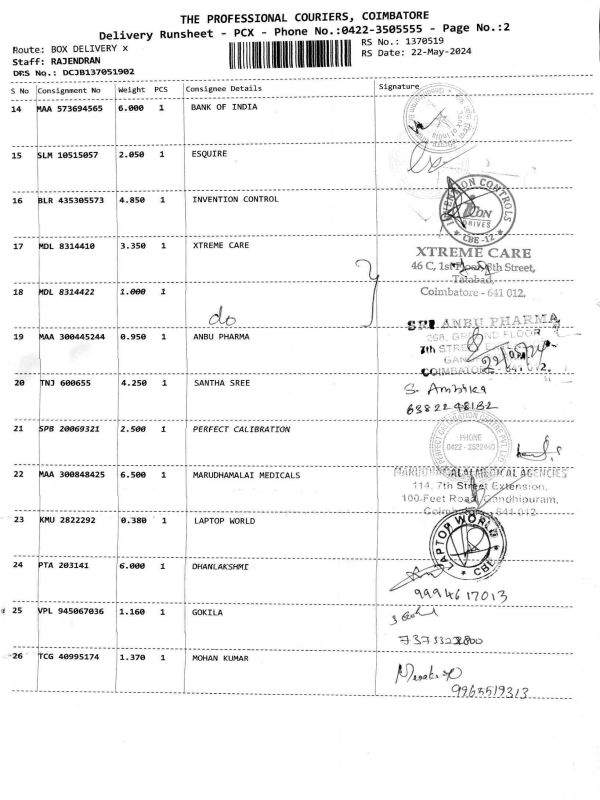 THE PROFESSIONAL COURIERS, COIMBATORE
Delivery Runsheet - PCX - Phone No.:0422-3505555 - Page No.:2
Route: BOX DELIVERY x
RS No.: 1370519
Staff: RAJENDRAN
RS Date: 22-May-2024
DRS No.: DCJB137051902
S No Consignment No Weight PCS Consignee Details Signature
14 MAA 573694565 6.000 1 BANK OF INDIA
15 SLM 10515057 2.050 1 ESQUIRE
16 BLR 435305573 4.850 1 INVENTION CONTROL
INVENTION CONTROLS
DRIVES
* CBE-12 *
17 MDL 8314410 3.350 1 XTREME CARE
XTREME CARE
46 C, 1st Floor, 8th Street,
Tatabad,
Coimbatore - 641 012.
18 MDL 8314422 1.000 1
do
19 MAA 300445244 0.950 1 ANBU PHARMA
SRI ANBU PHARMA
268, GROUND FLOOR
7th STREET
COIMBATORE - 641 012.
20 TNJ 600655 4.250 1 SANTHA SREE
S. Ambika
6382248132
21 SPB 20069321 2.500 1 PERFECT CALIBRATION
PHONE
0422 - 2522440
22 MAA 300848425 6.500 1 MARUDHAMALAI MEDICALS
MARUDHAMALAI MEDICAL AGENCIES
114, 7th Street Extension,
100 Feet Road, Gandhipuram,
Coimbatore - 641 012
23 KMU 2822292 0.380 1 LAPTOP WORLD
LAPTOP WORLD
* CBE *
24 PTA 203141 6.000 1 DHANLAKSHMI
9994617013
25 VPL 945067036 1.160 1 GOKILA
26 TCG 40995174 1.370 1 MOHAN KUMAR
9963519313